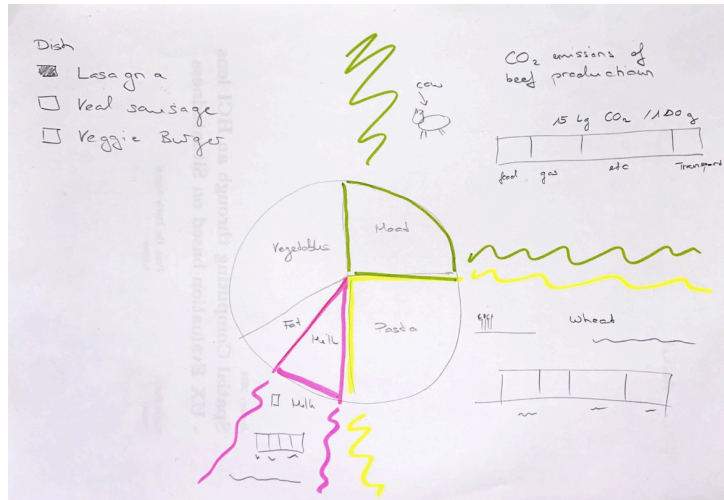 Dish
Lasagna
Veal sausage
Veggie Burger
cow
CO₂ emissions of
beef production
15 kg CO₂ / 100 g
food gas etc Transport
Vegetables
Meat
Fat
Milk
Pasta
Wheat
Milk